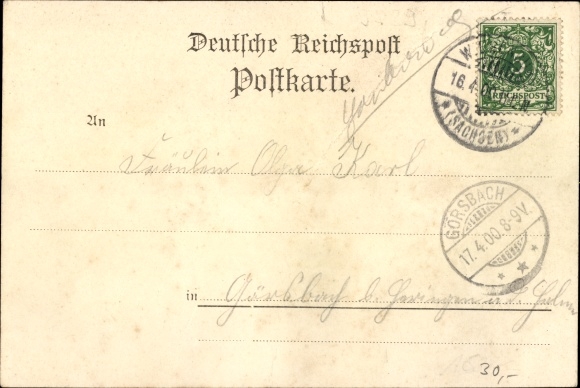 Deutsche Reichspost
Postkarte.
5
REICHSPOST
16.4.
(SACHSEN)
An
Fräulein Olga Karl
GÖRSBACH
17.4.00.8-9V.
in Görsbach b. Heringen a. d. Helme
30,-